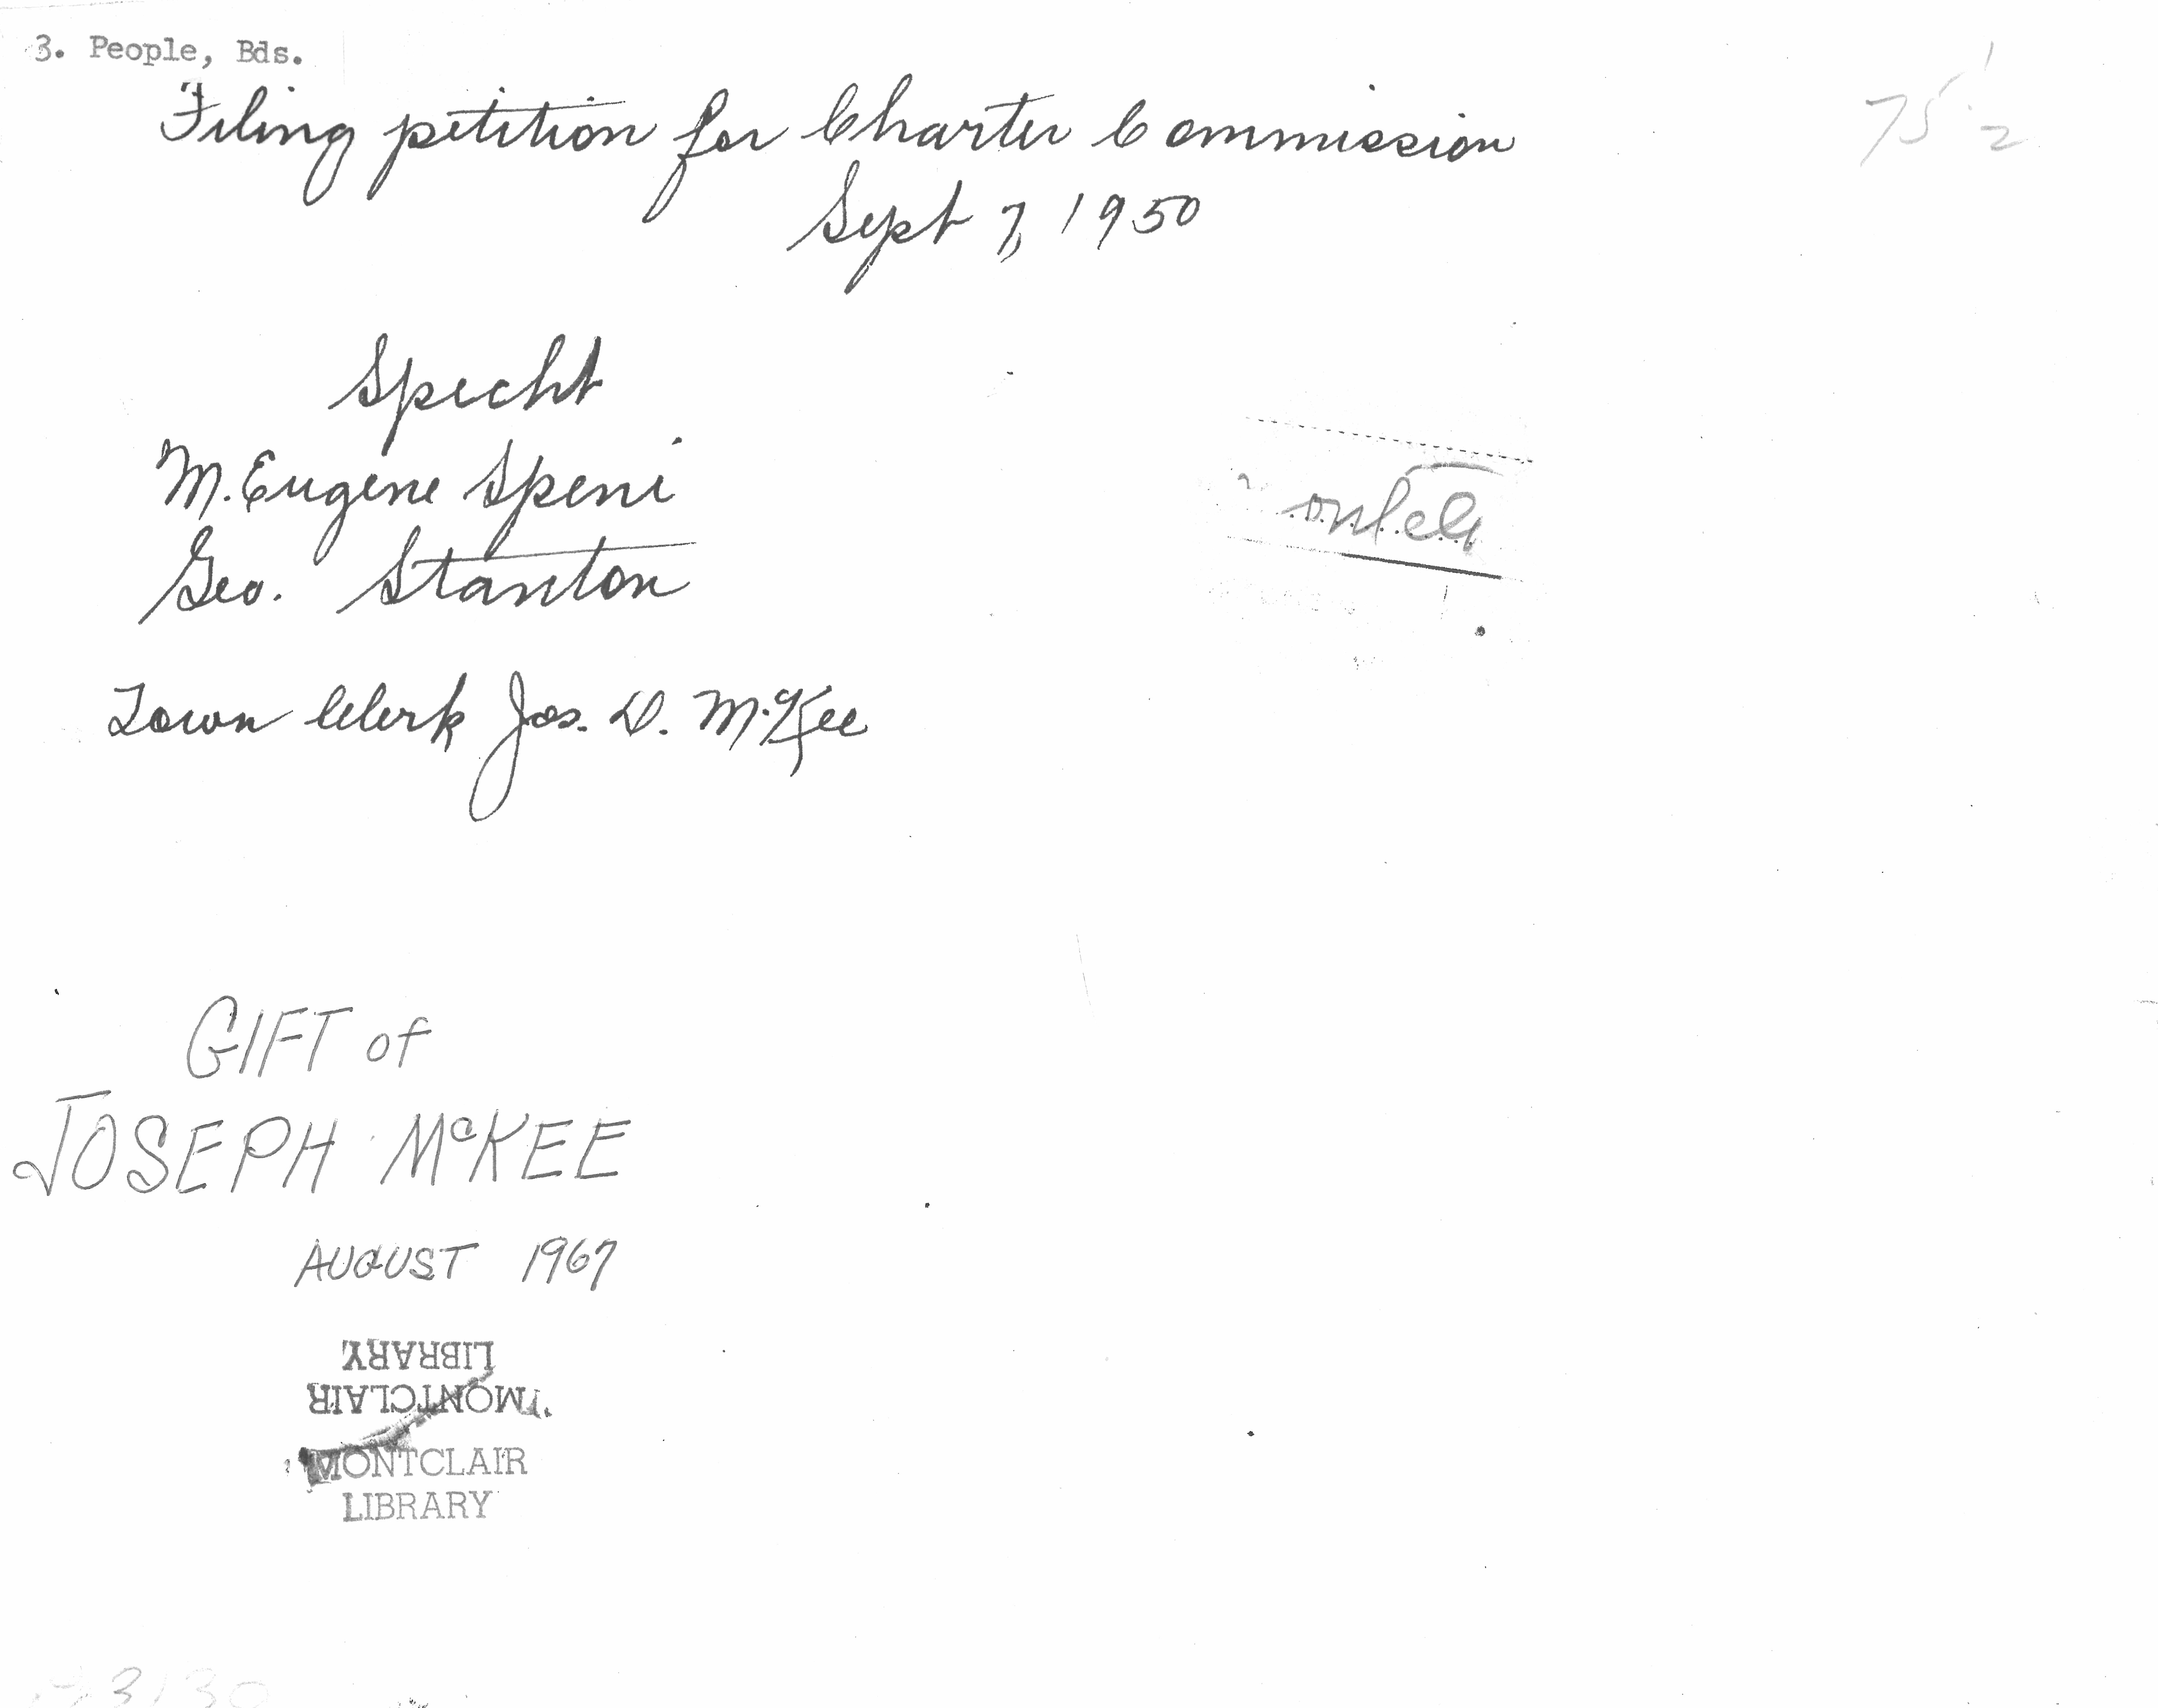 3. People, Bds.
Filing petition for Charter Commission
Sept 7, 1950
Specht
M. Eugene Speni
Geo. Stanton
Town Clerk Jos. D. McKee
GIFT of
JOSEPH McKEE
AUGUST 1967
MONTCLAIR
LIBRARY
MONTCLAIR
LIBRARY